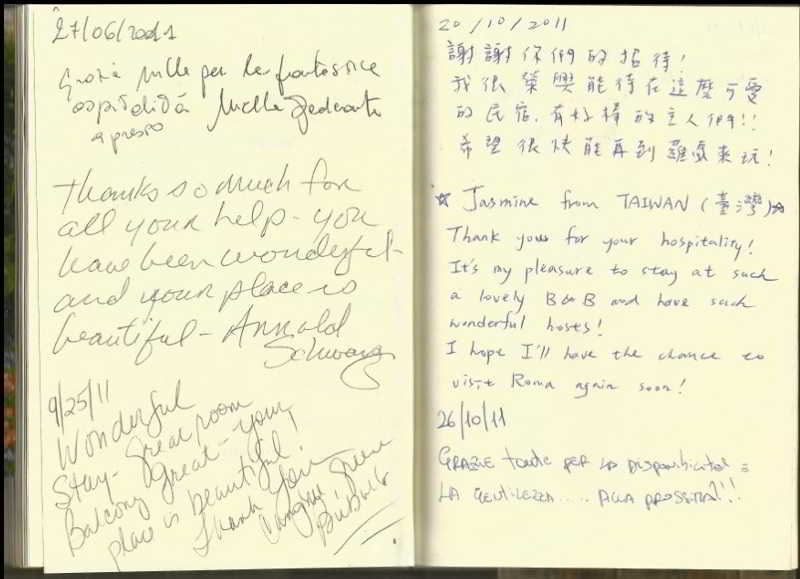 27/06/2011
mille per la fantastica
ospitalità
a presto
Thanks so much for
all your help - you
have been wonderful -
and your place is
beautiful - Arnold
9/25/11
Wonderful
Stay - Great room
Balcony great - your
place is beautiful!
Thank You
20/10/2011
謝謝你們的招待!
我很榮興能待在這麼可愛
的民宿.有好棒的主人們!!
希望很快能再到羅馬來玩!
☆ Jasmine from TAIWAN (臺灣)☆
Thank you for your hospitality!
It's my pleasure to stay at such
a lovely B&B and have such
wonderful hosts!
I hope I'll have the chance to
visit Roma again soon!
26/10/11
GRAZIE tante PER LA DISPONIBILITÀ E
LA GENTILEZZA .... ALLA PROSSIMA!!!